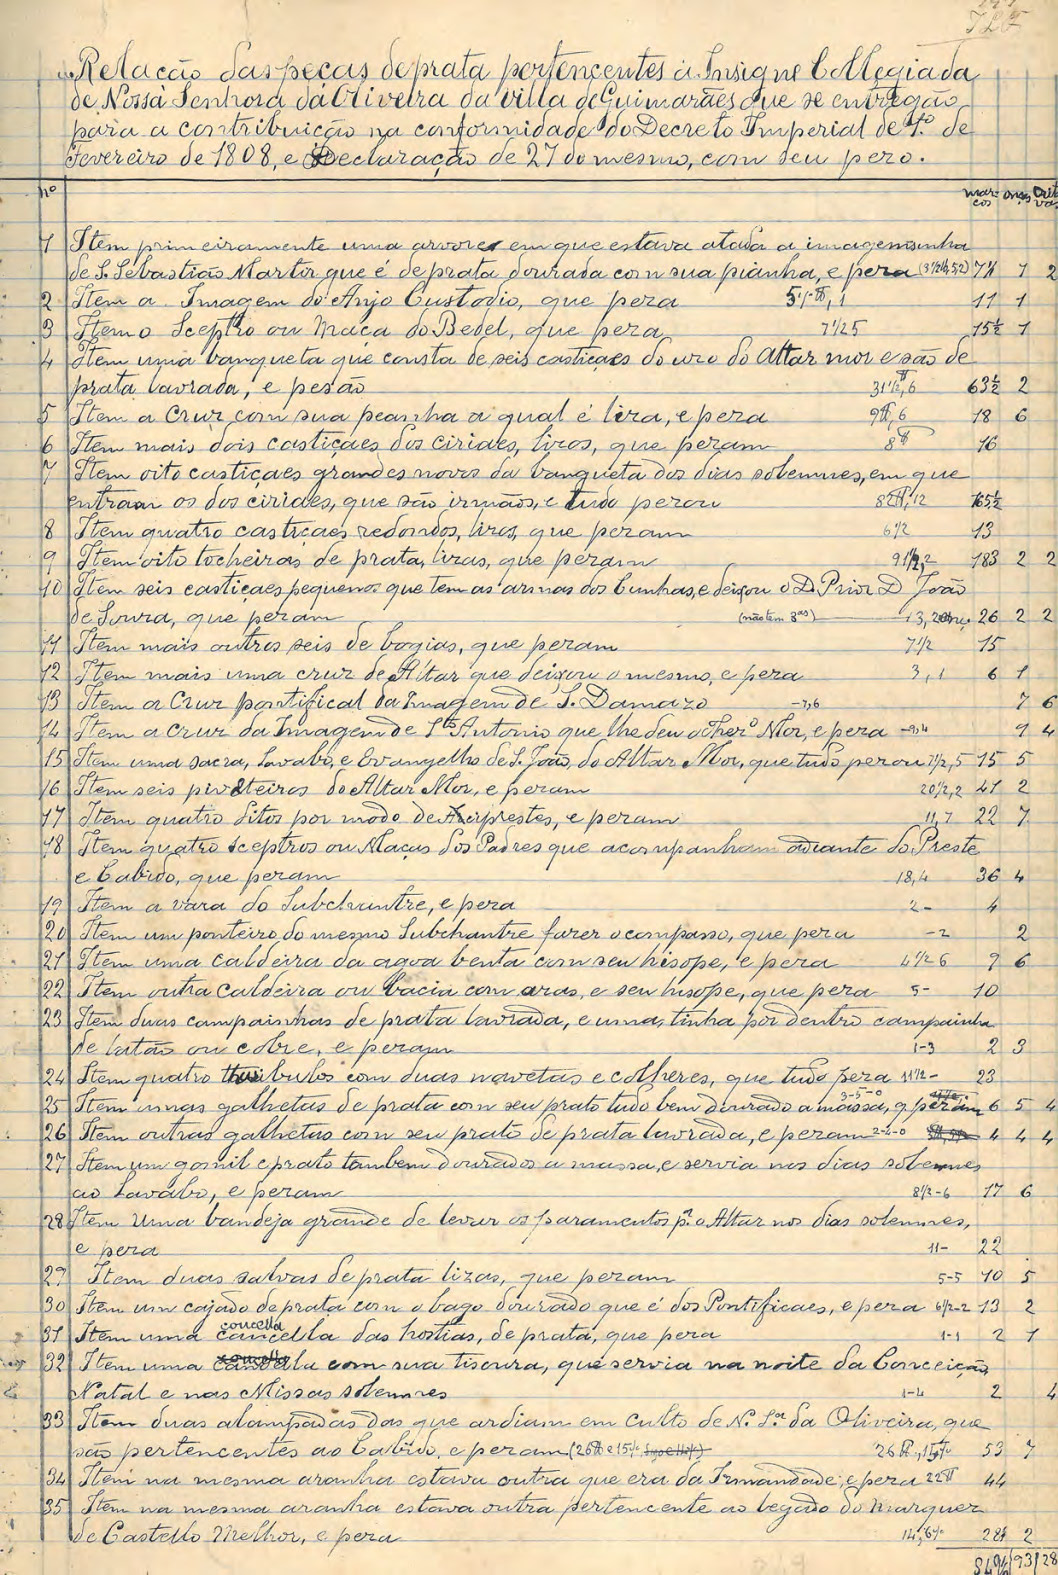 Relação das peças de prata pertencentes á Insigne Collegiada
de Nossa Senhora da Oliveira da villa de Guimarães que se entregão
para a contribuição na conformidade do Decreto Imperial de 1.º de
Fevereiro de 1808, e Declaração de 27 do mesmo, com seu pezo.
Nº marcos onças oitavas
1 Item primeiramente uma arvore em que estava atada a imagemsinha
de S. Sebastião Martir que é de prata dourada com sua pianha, e peza 1 2
2 Item a Imagem do Anjo Custodio, que peza 11 1
3 Item o Sceptro ou Maça do Bedel, que peza 7 1/2 5 15½ 1
4 Item uma banqueta que consta de seis castiçaes do uzo do Altar mor e são de
prata lavrada, e pesão 31 1/2, 6 63½ 2
5 Item a Cruz com sua peanha a qual é liza, e peza 9 , 6 18 6
6 Item mais dois castiçaes dos ciriaes, lizos, que pezam 8 16
7 Item oito castiçaes grandes novos da banqueta dos dias solemnes, em que
entram os dos ciriaes, que são irmãos, e tudo pezou 165½
8 Item quatro castiçaes redondos, lizos, que pezam 6 1/2 13
9 Item oito tocheiras de prata, lizas, que pezam 91 1/2, 2 183 2 2
10 Item seis castiçaes pequenos que tem as armas dos Cunhas, e deixou o D. Prior D. João
de Souza, que pezam (não tem 8as) 26 2 2
11 Item mais outros seis de bogias, que pezam 7 1/2 15
12 Item mais uma cruz de Altar que deixou o mesmo, e peza 3, 1 6 1
13 Item a Cruz pontifical da Imagem de S. Damazo -7,6 7 6
14 Item a Cruz da Imagem de Sto Antonio que lhe deu o Thez.º Mor, e peza -9,4 9 4
15 Item uma sacra, Lavabo, e Evangelho de S. João, do Altar Mor, que tudo pezou 7 1/2, 5 15 5
16 Item seis piveteiros do Altar Mor, e pezam 20 1/2, 2 41 2
17 Item quatro ditos por modo de Aciprestes, e pezam 11, 7 22 7
18 Item quatro sceptros ou Maças dos Padres que acompanham adiante do Preste
e Cabido, que pezam 18, 4 36 4
19 Item a vara do Subchantre, e peza 2 - 4
20 Item um ponteiro do mesmo Subchantre fazer o compasso, que peza -2 2
21 Item uma caldeira da agoa benta com seu hisope, e peza 4 1/2 6 9 6
22 Item outra caldeira ou bacia com azas, e seu hisope, que peza 5- 10
23 Item duas campainhas de prata lavrada, e uma, tinha por dentro campainha
de latão ou cobre, e pezam 1-3 2 3
24 Item quatro thuribulos com duas navetas e colheres, que tudo peza 11 1/2- 23
25 Item umas galhetas de prata com seu prato tudo bem dourado a massa, q. pezam 3-5-0 6 5 4
26 Item outras galhetas com seu prato de prata lavrada, e pezam 2-4-0 4 4 4
27 Item um gomil e prato tambem dourados a massa, e servia nos dias solemnes
ao Lavabo, e pezam 8 1/2-6 17 6
28 Item Uma bandeja grande de levar os paramentos p.ª o Altar nos dias solemnes,
e peza 11- 22
29 Item duas salvas de prata lizas, que pezam 5-5 10 5
30 Item um cajado de prata com o bago dourado que é dos Pontificaes, e peza 6 1/2-2 13 2
31 Item uma cancella das hostias, de prata, que peza 1-1 2 1
32 Item uma com sua tisoura, que servia na noite da Conceição
Natal e nas Missas solemnes 1-4 2 4
33 Item duas alampadas das que ardiam em culto de N.ª S.ra da Oliveira, que
são pertencentes ao Cabido, e pezam 53 7
34 Item na mesma aranha estava outra que era da Irmandade, e peza 22 44
35 Item na mesma aranha estava outra pertencente ao legado do Marquez
de Castello Melhor, e peza 28½ 2
849½ 93 28